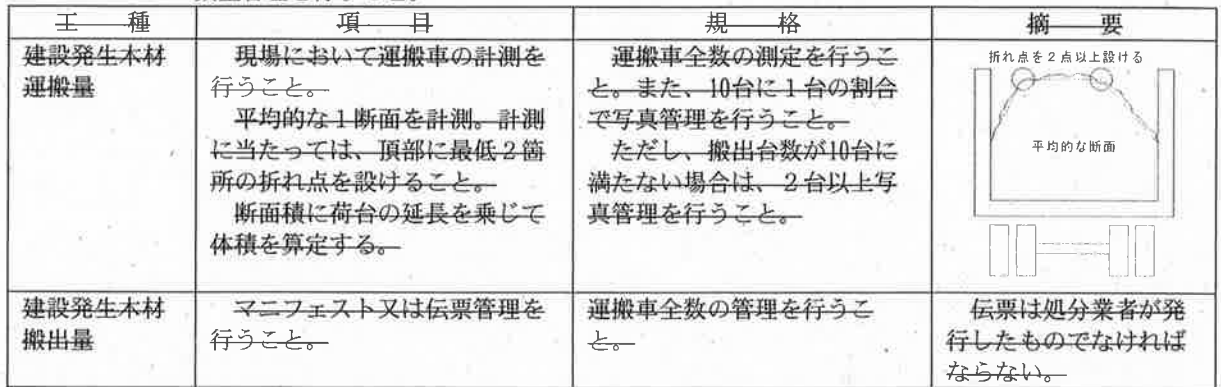 工　種　項　目　規　格　摘　要
建設発生木材
運搬量
現場において運搬車の計測を
行うこと。
平均的な1断面を計測。計測
に当たっては、頂部に最低2箇
所の折れ点を設けること。
断面積に荷台の延長を乗じて
体積を算定する。
運搬車全数の測定を行うこ
と。また、10台に1台の割合
で写真管理を行うこと。
ただし、搬出台数が10台に
満たない場合は、2台以上写
真管理を行うこと。
折れ点を2点以上設ける
平均的な断面
建設発生木材
搬出量
マニフェスト又は伝票管理を
行うこと。
運搬車全数の管理を行うこ
と。
伝票は処分業者が発
行したものでなければ
ならない。